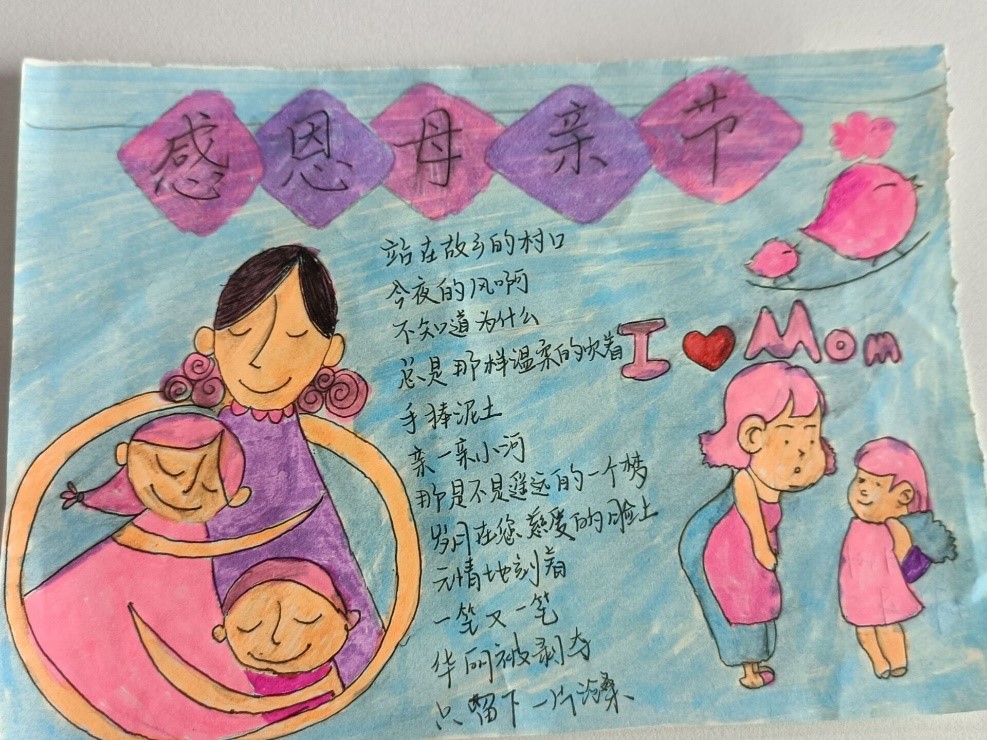 感恩母亲节
站在故乡的村口
今夜的风啊
不知道为什么
总是那样温柔的吹着
I Mom
手捧泥土
亲一亲小河
那是不是遥远的一个梦
岁月在您慈爱的脸上
无情地刻着
一笔又一笔
华丽被剥夺
只留下一片沧桑